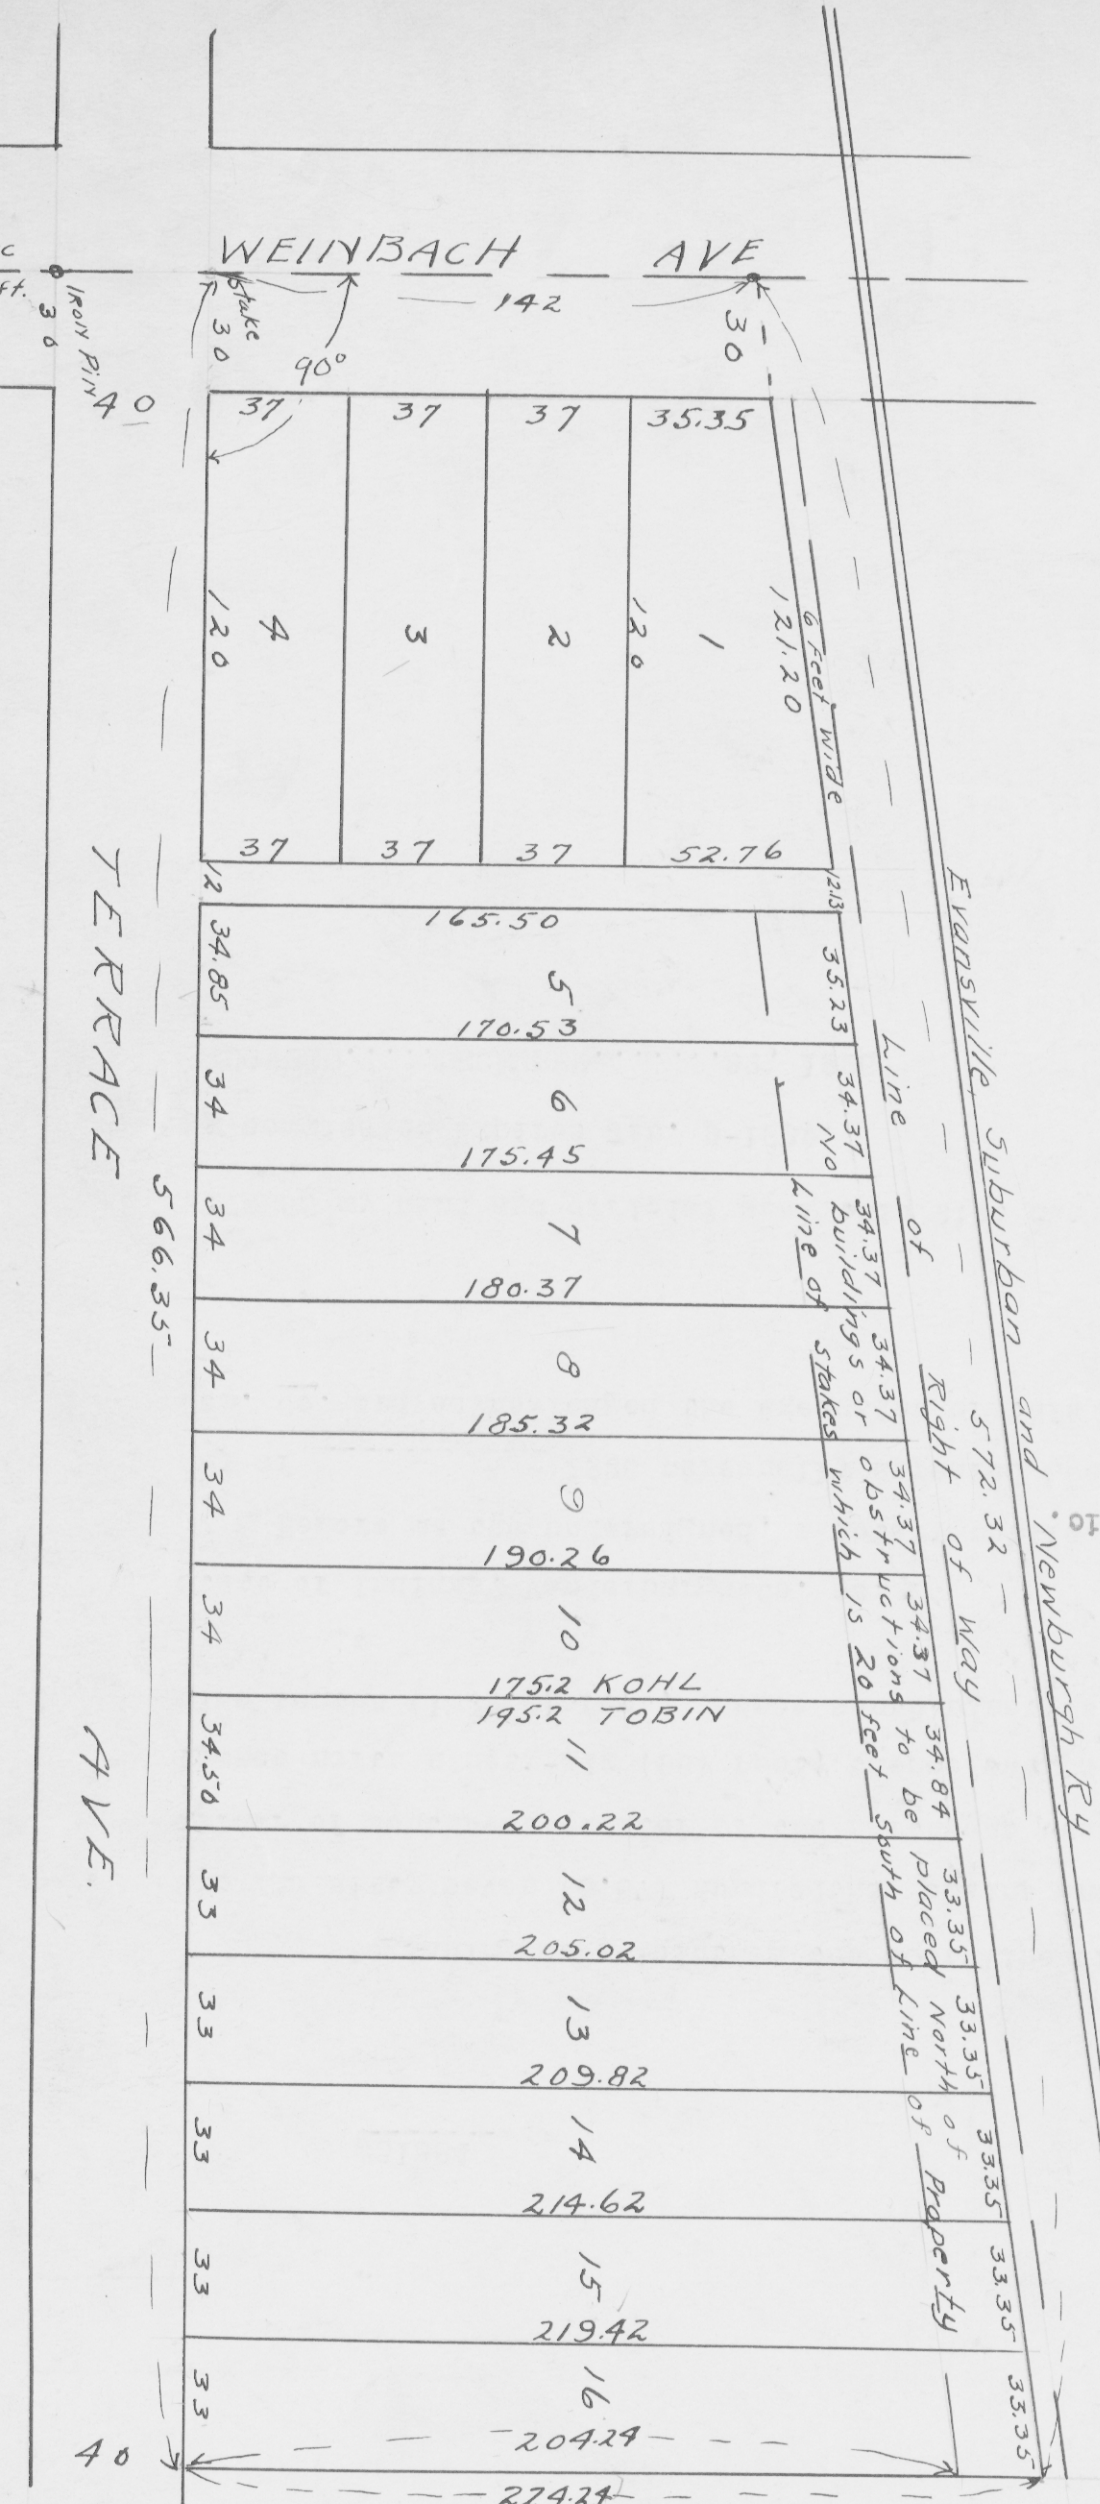 WEINBACH AVE
c
ft.
IRON PIN
30
Stake
30
142
30
90°
40
37
37
37
35.35
120
4
3
2
120
1
121.20
6 feet wide
37
37
37
52.76
12
12.13
165.50
34.85
5
35.23
170.53
34
6
34.37
175.45
34
7
34.37
180.37
34
8
34.37
185.32
34
9
34.37
190.26
34
10
34.37
175.2 KOHL
195.2 TOBIN
34.50
11
34.84
200.22
33
12
33.35
205.02
33
13
33.35
209.82
33
14
33.35
214.62
33
15
33.35
219.42
33
16
33.35
204.24
224.24
40
TERRACE AVE.
566.35
572.32
Evansville, Suburban and Newburgh Ry
Line of Right of Way
No buildings or obstructions to be placed North of
Line of stakes which is 20 feet south of Line of Property